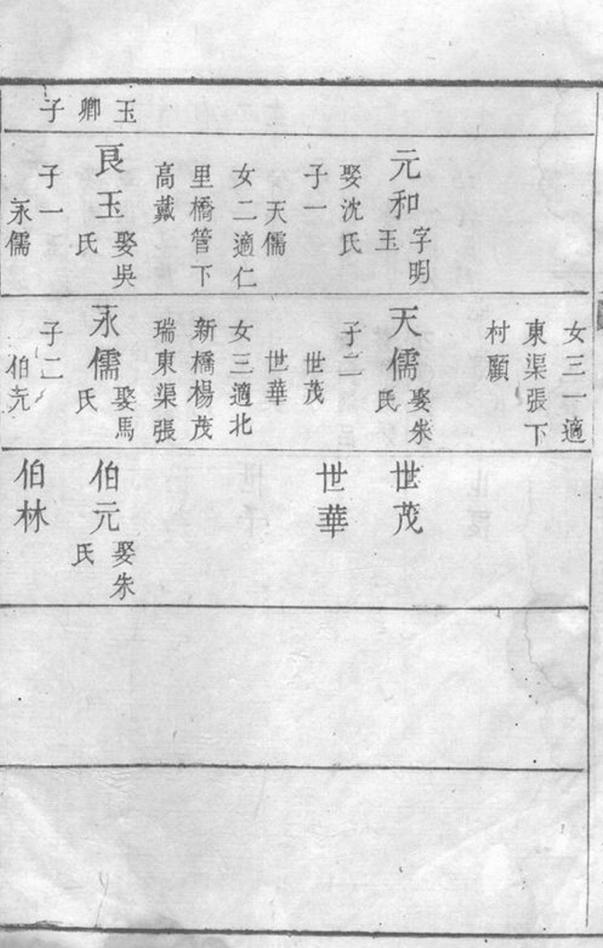 玉卿子
元和字明玉
娶沈氏
子一
天儒
女二適仁
里橋管下
高戴
良玉娶吳氏
子一
永儒
女三一適
東渠張下
村顧
天儒娶朱氏
子二
世茂
世華
女三適北
新橋楊茂
瑞東渠張
永儒娶馬氏
子二
伯元
世茂
世華
伯元娶朱氏
伯林